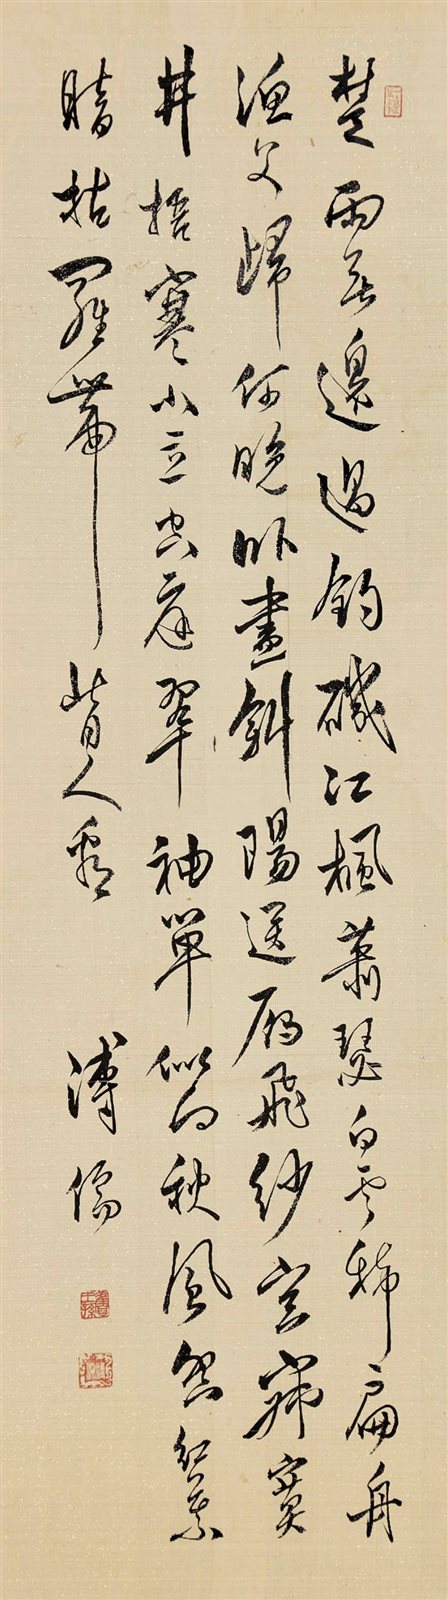 楚雨無邊過釣磯江楓蕭瑟白雲稀扁舟
漁父歸何晚臥盡斜陽送雁飛紗窗寂寞
井梧寒小立空庭翠袖單似向秋風怨紅葉
暗拈羅帶背人看
溥儒